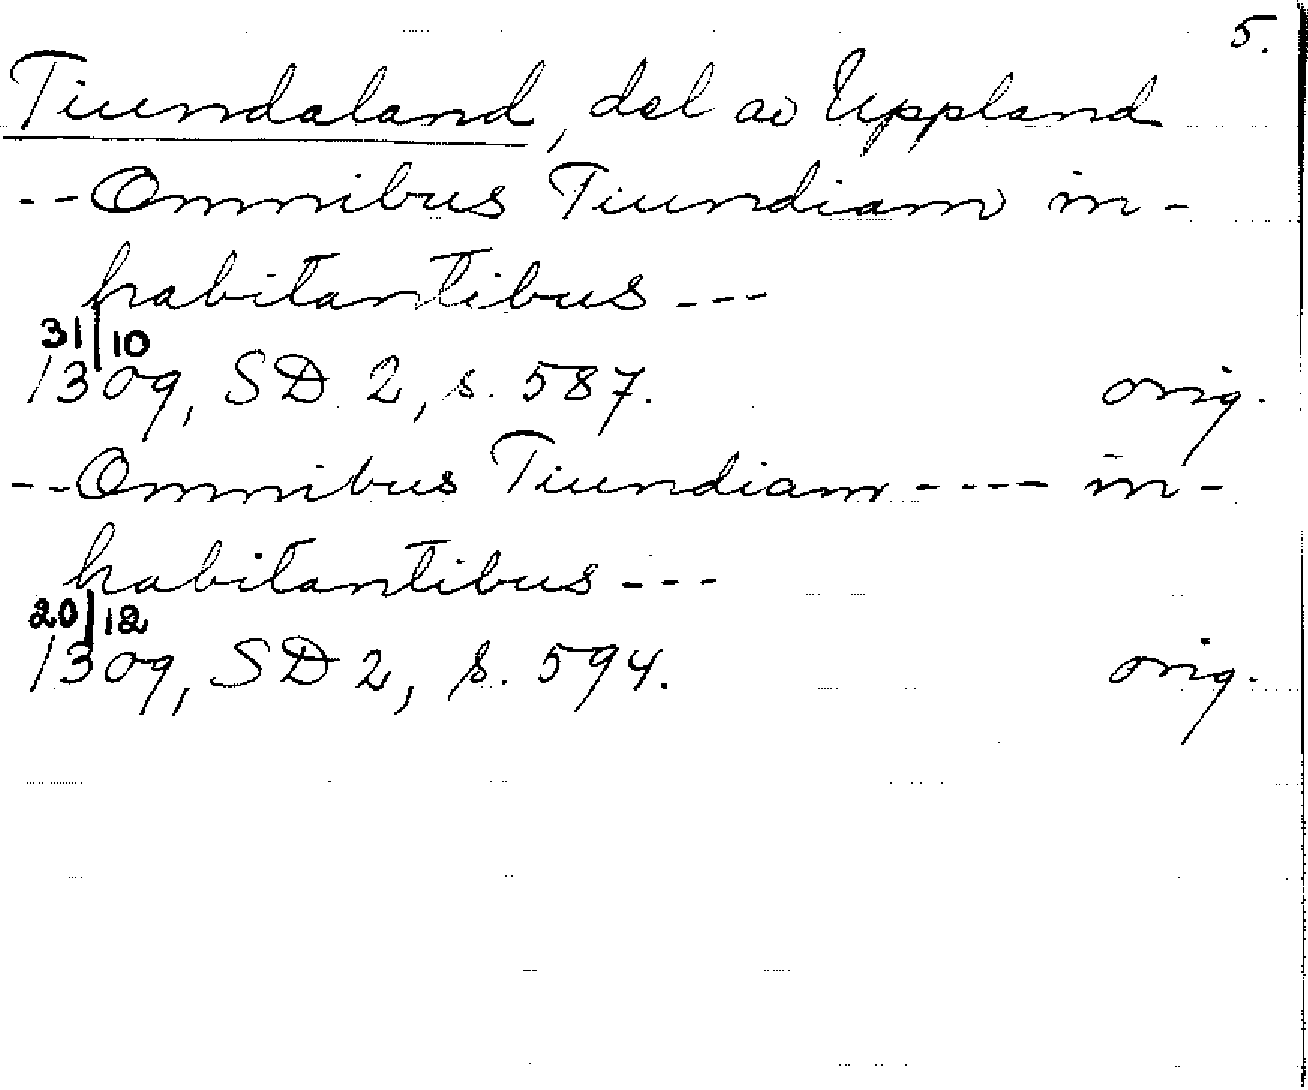 5.
Tiundaland, del av Uppland
-- Omnibus Tiundiam in-
habitantibus ---
31/10
1309, SD 2, s. 587. orig.
-- Omnibus Tiundiam ---- in-
habitantibus ---
20/12
1309, SD 2, s. 594. orig.